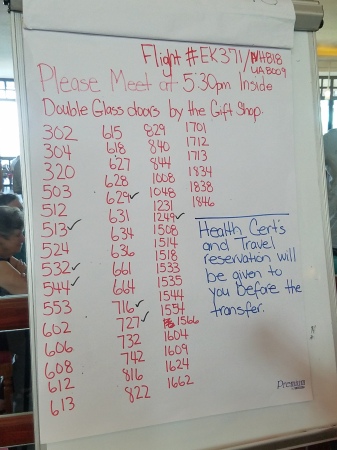 Flight #EK371/NH818
UA8009
Please Meet at 5:30pm Inside
Double Glass doors by the Gift Shop.
302 615 829 1701
304 618 840 1712
320 627 844 1713
503 628 1008 1834
512 629✓ 1048 1838
513✓ 631 1231 1846
524 634 1249✓
532✓ 636 1508
544✓ 661 1514
553 664 1518
602 716✓ 1533
606 727✓ 1535
608 732 1544
612 742 1554
613 816 1566
822 1604
1609
1624
1662
Health Cert's
and Travel
reservation will
be given to
you before the
transfer.